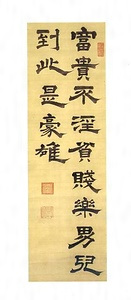 富貴不淫貧賤樂男兒
到此是豪雄